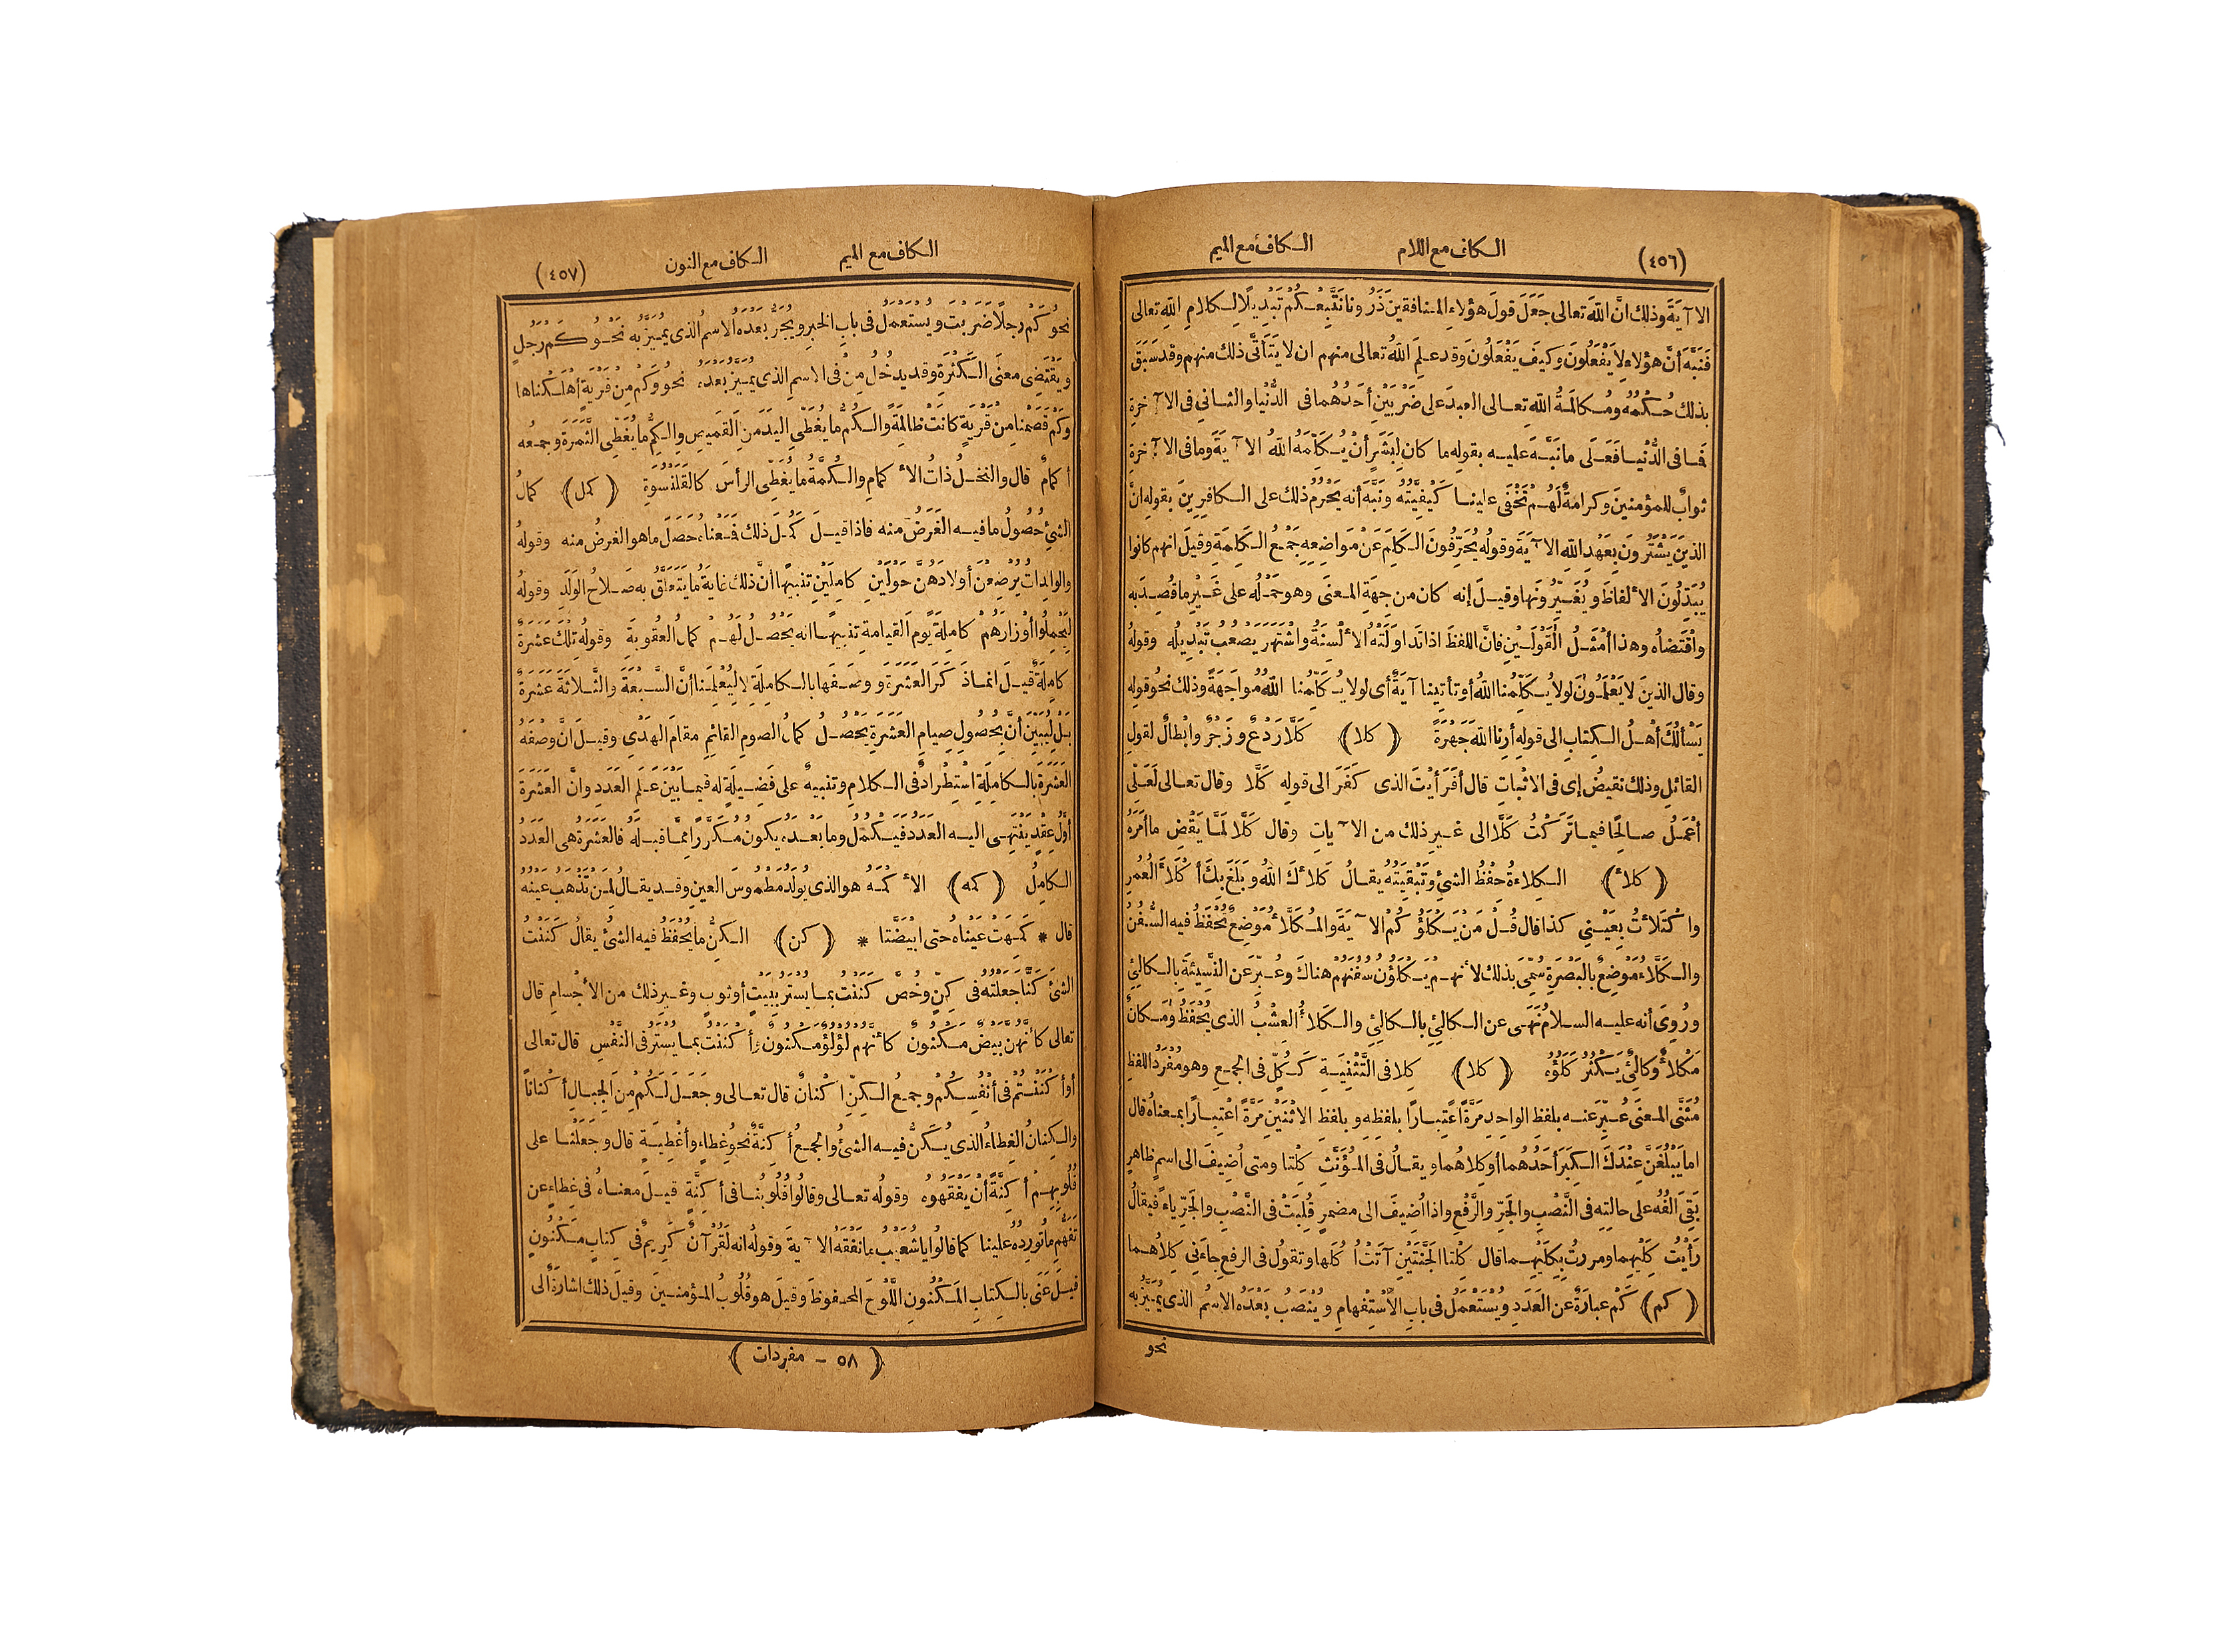 (٤٥٦) الكاف مع اللام الكاف مع الميم
الآيَةَ وذلك انَّ اللّٰهَ تعالى جَعَلَ قولَ هؤلاءِ المنافقينَ ذَرُونا نَتَّبِعْكُمْ تَبْدِيلًا لكلامِ اللّٰهِ تعالى
فَنَبَّهَ أنَّ هؤلاءِ لا يَفْعَلُونَ وكيفَ يَفْعَلُونَ وقد عَلِمَ اللّٰهُ تعالى منهم ان لا يَتَأتَّى ذلك منهم وقد سَبَقَ
بذلك حُكْمُهُ ومُكالَمةُ اللّٰهِ تعالى العبدَ على ضَرْبَيْنِ أحَدُهُما فى الدُّنْيا والثانِى فى الآخرةِ
فَما فى الدُّنْيا فَعَلَى ما نَبَّهَ عليه بقولِه ما كان لِبَشَرٍ أنْ يُكَلِّمَهُ اللّٰهُ الآيَةَ وما فى الآخرةِ
ثوابٌ للمؤمنينَ وكرامةٌ لَهُمْ تَخْفَى علينا كَيْفِيَّتُهُ ونَبَّهَ أنه يَحْرُمُ ذلك على الكافرِينَ بقولِه انَّ
الذينَ يَشْتَرُونَ بِعَهْدِ اللّٰهِ الآيَةَ وقولُه يُحَرِّفُونَ الكَلِمَ عَنْ مَواضِعِهِ جَمْعُ الكَلِمَةِ وقيلَ انهم كانوا
يُبَدِّلُونَ الألفاظَ ويُغَيِّرُونَها وقيلَ إنه كان من جهَةِ المعنَى وهو حَمْلُه على غَيْرِ ما قُصِدَ به
واقْتَضاهُ وهذا أمْثَلُ القَوْلَيْنِ فانَّ اللفظَ اذا تَداوَلَتْهُ الألْسِنَةُ واشْتَهَرَ يَصْعُبُ تَبْدِيلُه وقولُه
وقال الذينَ لا يَعْلَمُونَ لولا يُكَلِّمُنا اللّٰهُ أو تأتِينا آيَةٌ أى لولا يُكَلِّمُنا اللّٰهُ مُواجَهَةً وذلك نحوُ قولِه
يَسْألُكَ أهْلُ الكِتابِ الى قولِه أرِنا اللّٰهَ جَهْرَةً (كلا) كَلَّا رَدْعٌ وزَجْرٌ وابْطالٌ لقولِ
القائلِ وذلك نقيضُ إى فى الاثْباتِ قال أفَرَأيْتَ الذى كَفَرَ الى قولِه كَلَّا وقال تعالى لَعَلِّى
أعْمَلُ صالِحًا فيما تَرَكْتُ كَلَّا الى غيرِ ذلك من الآياتِ وقال كَلَّا لَمَّا يَقْضِ ما أمَرَهُ
(كلأ) الكِلاءَةُ حِفْظُ الشئِ وتَبْقِيَتُهُ يقالُ كَلأَكَ اللّٰهُ وبَلَغَ بِكَ أكْلأَ العُمُرِ
واكْتَلأتُ بِعَيْنِى كذا قال قُلْ مَنْ يَكْلَؤُكُمْ الآيَةَ والمُكَلَّأُ مَوْضِعٌ تُحْفَظُ فيه السُّفُنُ
والكَلَّاءُ مَوْضِعٌ بالبَصْرَةِ سُمِّىَ بذلك لأنهم يَكْلَؤُنَ سُفُنَهُمْ هناكَ وعُبِّرَ عن النَّسِيئَةِ بالكالِئِ
ورُوِىَ أنه عليه السلامُ نَهَى عن الكالِئِ بالكالِئِ والكَلأُ العُشْبُ الذى يُحْفَظُ ومَكانٌ
مَكْلأٌ وكالِئٌ يَكْثُرُ كَلَؤُهُ (كلا) كِلا فى التَّثْنِيَةِ كَكُلٍّ فى الجمعِ وهو مُفْرَدُ اللفظِ
مُثَنَّى المعنَى عُبِّرَ عنه بلفظِ الواحِدِ مَرَّةً اعْتِبارًا بلفظِهِ وبلفظِ الاثْنَيْنِ مَرَّةً اعْتِبارًا بمعناهُ قال
اما يَبْلُغَنَّ عِنْدَكَ الكِبَرَ أحَدُهُما أو كلاهُما ويقالُ فى المُؤَنَّثِ كِلْتا ومتى أُضِيفَ الى اسمٍ ظاهرٍ
بَقِىَ الفُهُ على حالَتِهِ فى النَّصْبِ والجَرِّ والرَّفْعِ واذا أُضِيفَ الى مضمرٍ قُلِبَتْ فى النَّصْبِ والجَرِّ ياءً فيقالُ
رَأيْتُ كِلَيْهِما ومررتُ بِكِلَيْهِما قال كِلْتا الجَنَّتَيْنِ آتَتْ أُكُلَها وتقولُ فى الرفعِ جاءَنِى كِلاهُما
(كم) كَمْ عبارَةٌ عن العَدَدِ ويُسْتَعْمَلُ فى بابِ الاسْتِفْهامِ ويُنْصَبُ بَعْدَهُ الاسْمُ الذى يُمَيَّزُ به
نحو
الكاف مع الميم الكاف مع النون (٤٥٧)
نحوُ كَمْ رجلًا ضَرَبْتَ ويُسْتَعملُ فى بابِ الخبرِ ويُجَرُّ بَعْدَهُ الاسمُ الذى يُمَيَّزُ به نَحْوُ كَمْ رَجُلٍ
ويَقْتَضِى معنَى الكَثْرَةِ وقد يدخُلُ مِنْ فى الاسمِ الذى يُمَيَّزُ بَعْدَهُ نحوُ وكَمْ مِنْ قَرْيَةٍ أهْلَكْناها
وكَمْ قَصَمْنا مِنْ قَرْيَةٍ كانَتْ ظالِمَةً والكُمُّ ما يُغَطِّى اليَدَ مِنَ القَمِيصِ والكِمُّ ما يُغَطِّى الثَّمَرَةَ وجمعُه
أكمامٌ قال والنخلُ ذاتُ الأكمامِ والكُمَّةُ ما يُغَطِّى الرأسَ كالقَلَنْسُوَةِ (كمل) كمالُ
الشئِ حُصُولُ ما فيه الغَرَضُ منه فاذا قيلَ كَمُلَ ذلك فَمعناهُ حَصَلَ ما هو الغرضُ منه وقولُه
والوالِداتُ يُرْضِعْنَ أولادَهُنَّ حَوْلَيْنِ كامِلَيْنِ تنبيهًا أنَّ ذلك غايَةُ ما يَتَعَلَّقُ به صَلاحُ الوَلَدِ وقولُه
لِيَحْمِلُوا أوْزارَهُمْ كامِلَةً يَوْمَ القيامةِ تنبيهًا انه يَحْصُلُ لَهُمْ كمالُ العُقوبةِ وقولُه تِلْكَ عَشَرَةٌ
كامِلَةٌ قيلَ انما ذَكَرَ العَشَرَةَ ووصَفَها بالكامِلَةِ لا لِيُعْلِمَنا أنَّ السَّبْعَةَ والثَّلاثَةَ عَشَرَةٌ
بَلْ لِيُبَيِّنَ أنَّ بِحُصُولِ صِيامِ العَشَرَةِ يَحْصُلُ كمالُ الصومِ القائمِ مقامَ الهَدْىِ وقيلَ انَّ وصْفَهُ
العَشَرَةَ بالكامِلَةِ اسْتِطْرادٌ فى الكلامِ وتنبيهٌ على فَضِيلَةٍ له فيما بَيْنَ عِلْمِ العَدَدِ وانَّ العَشَرَةَ
أوَّلُ عِقْدٍ يَنْتَهِى اليه العَدَدُ فَيَكْمُلُ وما بَعْدَهُ يكونُ مُكَرَّرًا مِمَّا قبلَهُ فالعَشَرَةُ هى العَدَدُ
الكامِلُ (كمه) الأكْمَهُ هو الذى يُولَدُ مَطْمُوسَ العينِ وقد يقالُ لِمَنْ تَذْهَبُ عَيْنُهُ
قال * كَمِهَتْ عَيْناهُ حتى ابْيَضَّتا * (كن) الكِنُّ ما يُحْفَظُ فيه الشئُ يقالُ كَنَنْتُ
الشئَ كَنًّا جَعَلْتُه فى كِنٍّ وخُصَّ كَنَنْتُ بما يستَرُ بِبَيْتٍ أو ثوبٍ وغيرِ ذلك من الأجْسامِ قال
تعالى كأنَّهُنَّ بَيْضٌ مَكْنُونٌ كأنَّهُمْ لُؤْلُؤٌ مَكْنُونٌ وأكْنَنْتُ بما يُسْتَرُ فى النَّفْسِ قال تعالى
أو أكْنَنْتُمْ فى أنْفُسِكُمْ وجمعُ الكِنِّ أكْنانٌ قال تعالى وجَعَلَ لَكُمْ مِنَ الجِبالِ أكْنانًا
والكِنانُ الغِطاءُ الذى يُكَنُّ فيه الشئُ والجمعُ أكِنَّةٌ نحوُ غِطاءٍ وأغْطِيَةٍ قال وجَعَلْنا على
قُلُوبِهِمْ أكِنَّةً أنْ يَفْقَهُوهُ وقولُه تعالى وقالُوا قُلُوبُنا فى أكِنَّةٍ قيلَ معناهُ فى غِطاءٍ عن
تَفَهُّمِ ما تُورِدُه علينا كما قالُوا يا شُعَيْبُ ما نَفْقَهُ الآيةَ وقولُه انه لَقُرْآنٌ كَرِيمٌ فى كِتابٍ مَكْنُونٍ
قيلَ عَنَى بالكِتابِ المَكْنُونِ اللَّوْحَ المحفوظَ وقيلَ هو قُلُوبُ المؤمنينَ وقيلَ ذلك اشارَةٌ الى
(٥٨ – مفردات)